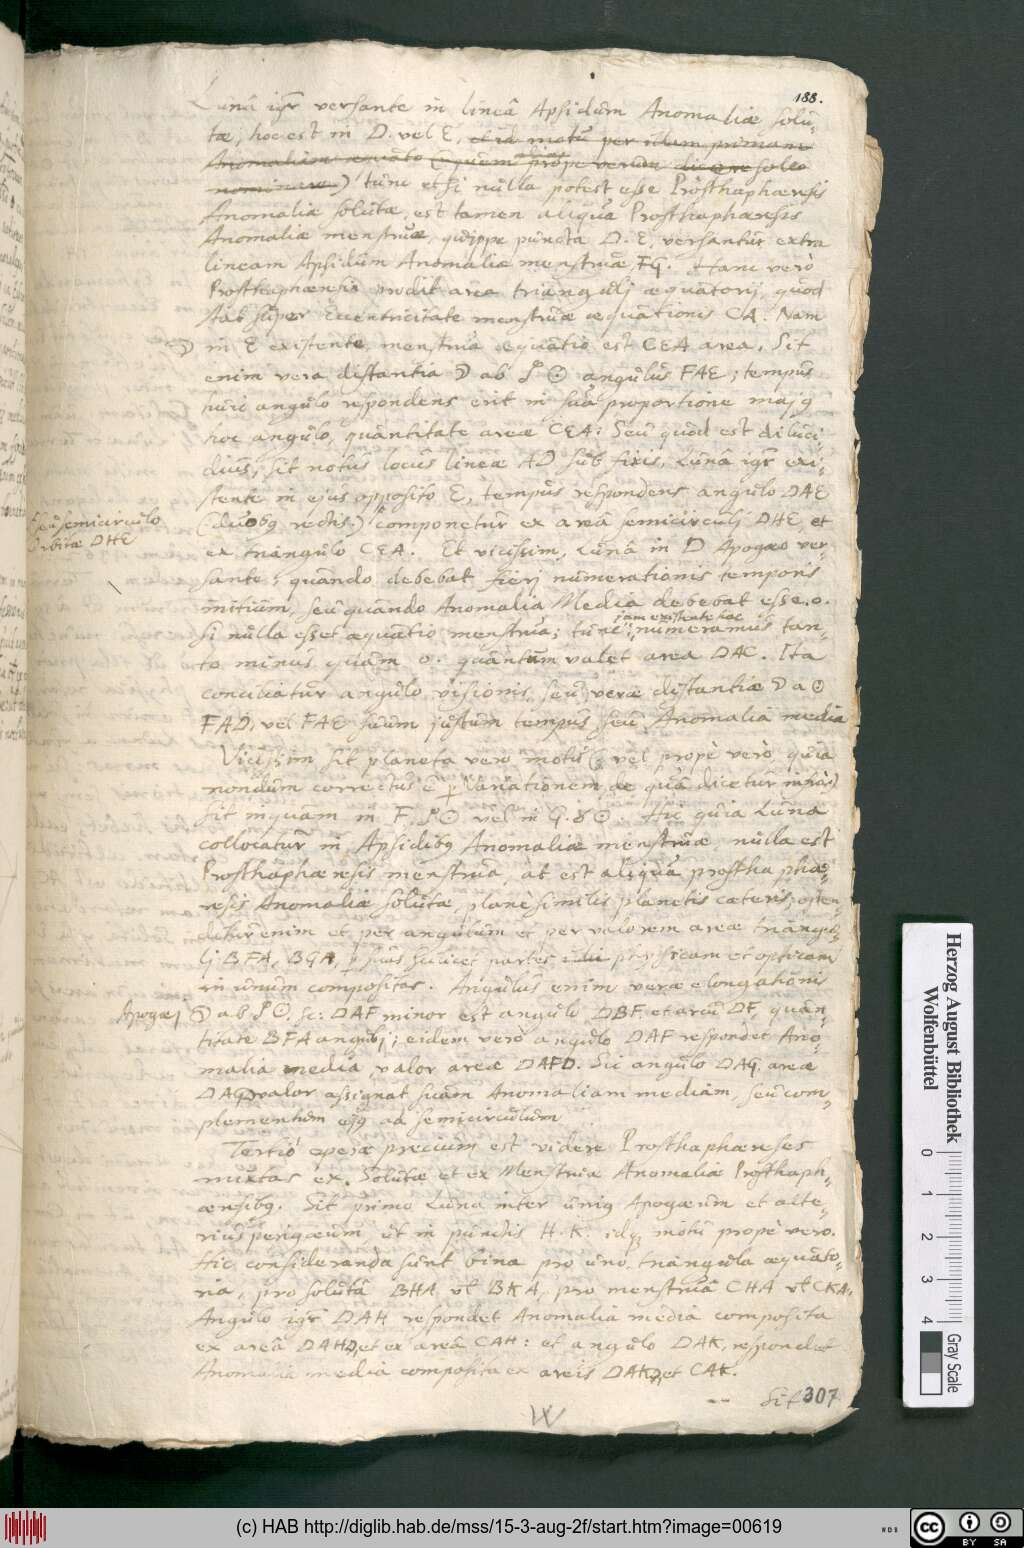 188.
Lunâ igr versante in lineâ Apsidum Anomaliæ solu-
tæ, hoc est in D. vel E, et id motu per illum primam
Anomaliam (quem prope verum dicere soleo
nominare) tunc etsi nulla potest esse Prosthaphæresis
Anomaliæ solutæ, est tamen aliqua Prosthaphæresis
Anomaliæ menstruæ, quippe puncta D. E, versantur extra
lineam Apsidum Anomaliæ menstruæ FG. Hanc verò
Prosthaphæresin prodit area trianguli æquatorij, quod
stat super Eccentricitate menstruæ æquationis CA. Nam
☽ in E existente, menstrua æquatio est CEA area. Sit
enim vera distantia ☽ ab ☍ ☉ angulus FAE; tempus
huic angulo respondens erit in suâ proportione majus
hoc angulo, quantitate areæ CEA: Seu quod est diluci-
dius, sit notus locus lineæ AD sub fixis, Lunâ igr exi-
stente in ejus opposito E, tempus respondens angulo DAE
(duobus rectis) componetur ex areâ semicirculj DHE et
Seu semicirculo
Orbitæ DHE
ex triangulo CEA. Et vicissim, Lunâ in D Apogæo ver-
sante, quando debebat fierj numerationis temporis
initium, seu quando Anomalia Media debebat esse .0.
si nulla esset æquatio menstrua; tunc jam existente hac numeramus tan-
to minus quam 0. quantum valet area DAC. Ita
conciliatur angulo visionis, seu veræ distantiæ ☽ a ☉
FAD, vel FAE suum justum tempus, seu Anomalia media
Vicissim sit planeta vero motu (vel propè verò, quia
nondum correctus ē p Variationem, de qua dicetur infrà)
sit inquam in F, ☍☉ vel in G. ☌☉. Hic quia Luna
collocatur in Apsidibus Anomaliæ menstruæ, nulla est
Prosthaphæresis menstrua, at est aliqua prosthaphæ-
resis Anomaliæ solutæ, planè similis planetis cæteris; osten-
ditur enim et per angulum et per valorem areæ triangu-
li BFA, BGA, p suas scilicet partes physicam et opticam
in unum compositas. Angulus enim veræ elongationis
Apogæj ☽ ab ☍☉, sc: DAF minor est angulo DBF et arcu DF, quan-
titate BFA angulj; eidem verò angulo DAF respondet Ano-
malia media, valor areæ DAFD. Sic angulo DAG, areæ
DAGD valor assignat suam Anomaliam mediam, seu com-
plementum ejus ad semicirculum
Tertiò operæ precium est videre Prosthaphæreses
mixtas ex Solutæ et ex Menstruæ Anomaliæ Prosthaph-
æresibus. Sit primo Luna inter unius Apogæum et alte-
rius perigæum, ut in punctis H. K. idque motu propè vero.
Hic consideranda sunt bina pro uno triangula æquato-
ria, pro soluta BHA vel BKA, pro menstrua CHA vel CKA.
Angulo igr DAH respondet Anomalia media composita
ex areâ DAHD, et ex areâ CAH: et angulo DAK, respondet
Anomalia media composita ex areis DAKD, et CAK.
Sit
307
Herzog August Bibliothek
Wolfenbüttel
0 1 2 3 4
Gray Scale
(c) HAB http://diglib.hab.de/mss/15-3-aug-2f/start.htm?image=00619
WDB
cc BY SA